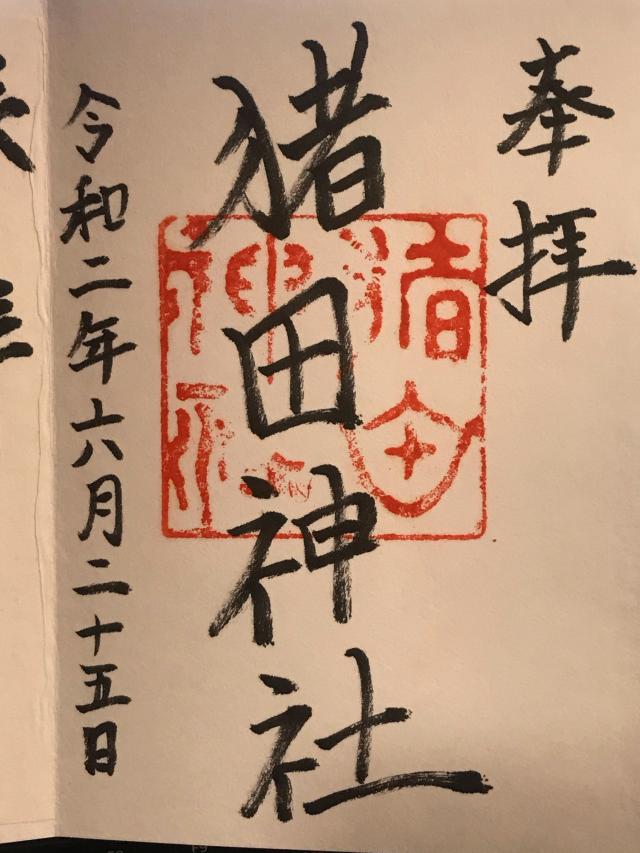 奉拝
猪田神社
令和二年六月二十五日